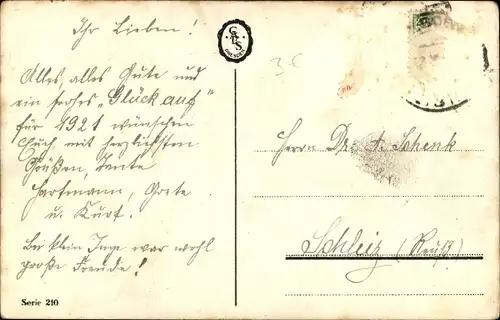 Ihr Lieben!
Alles, alles Gute und
ein frohes „Glück auf"
für 1921 wünschen
Euch mit herzlichsten
Grüßen, Tante
Hartmann, Grete
u. Kurt.
Bei klein Inge war wohl
große Freude!
Serie 210
35
Herrn Dr. A. Schenk
Schleiz (Reuß)